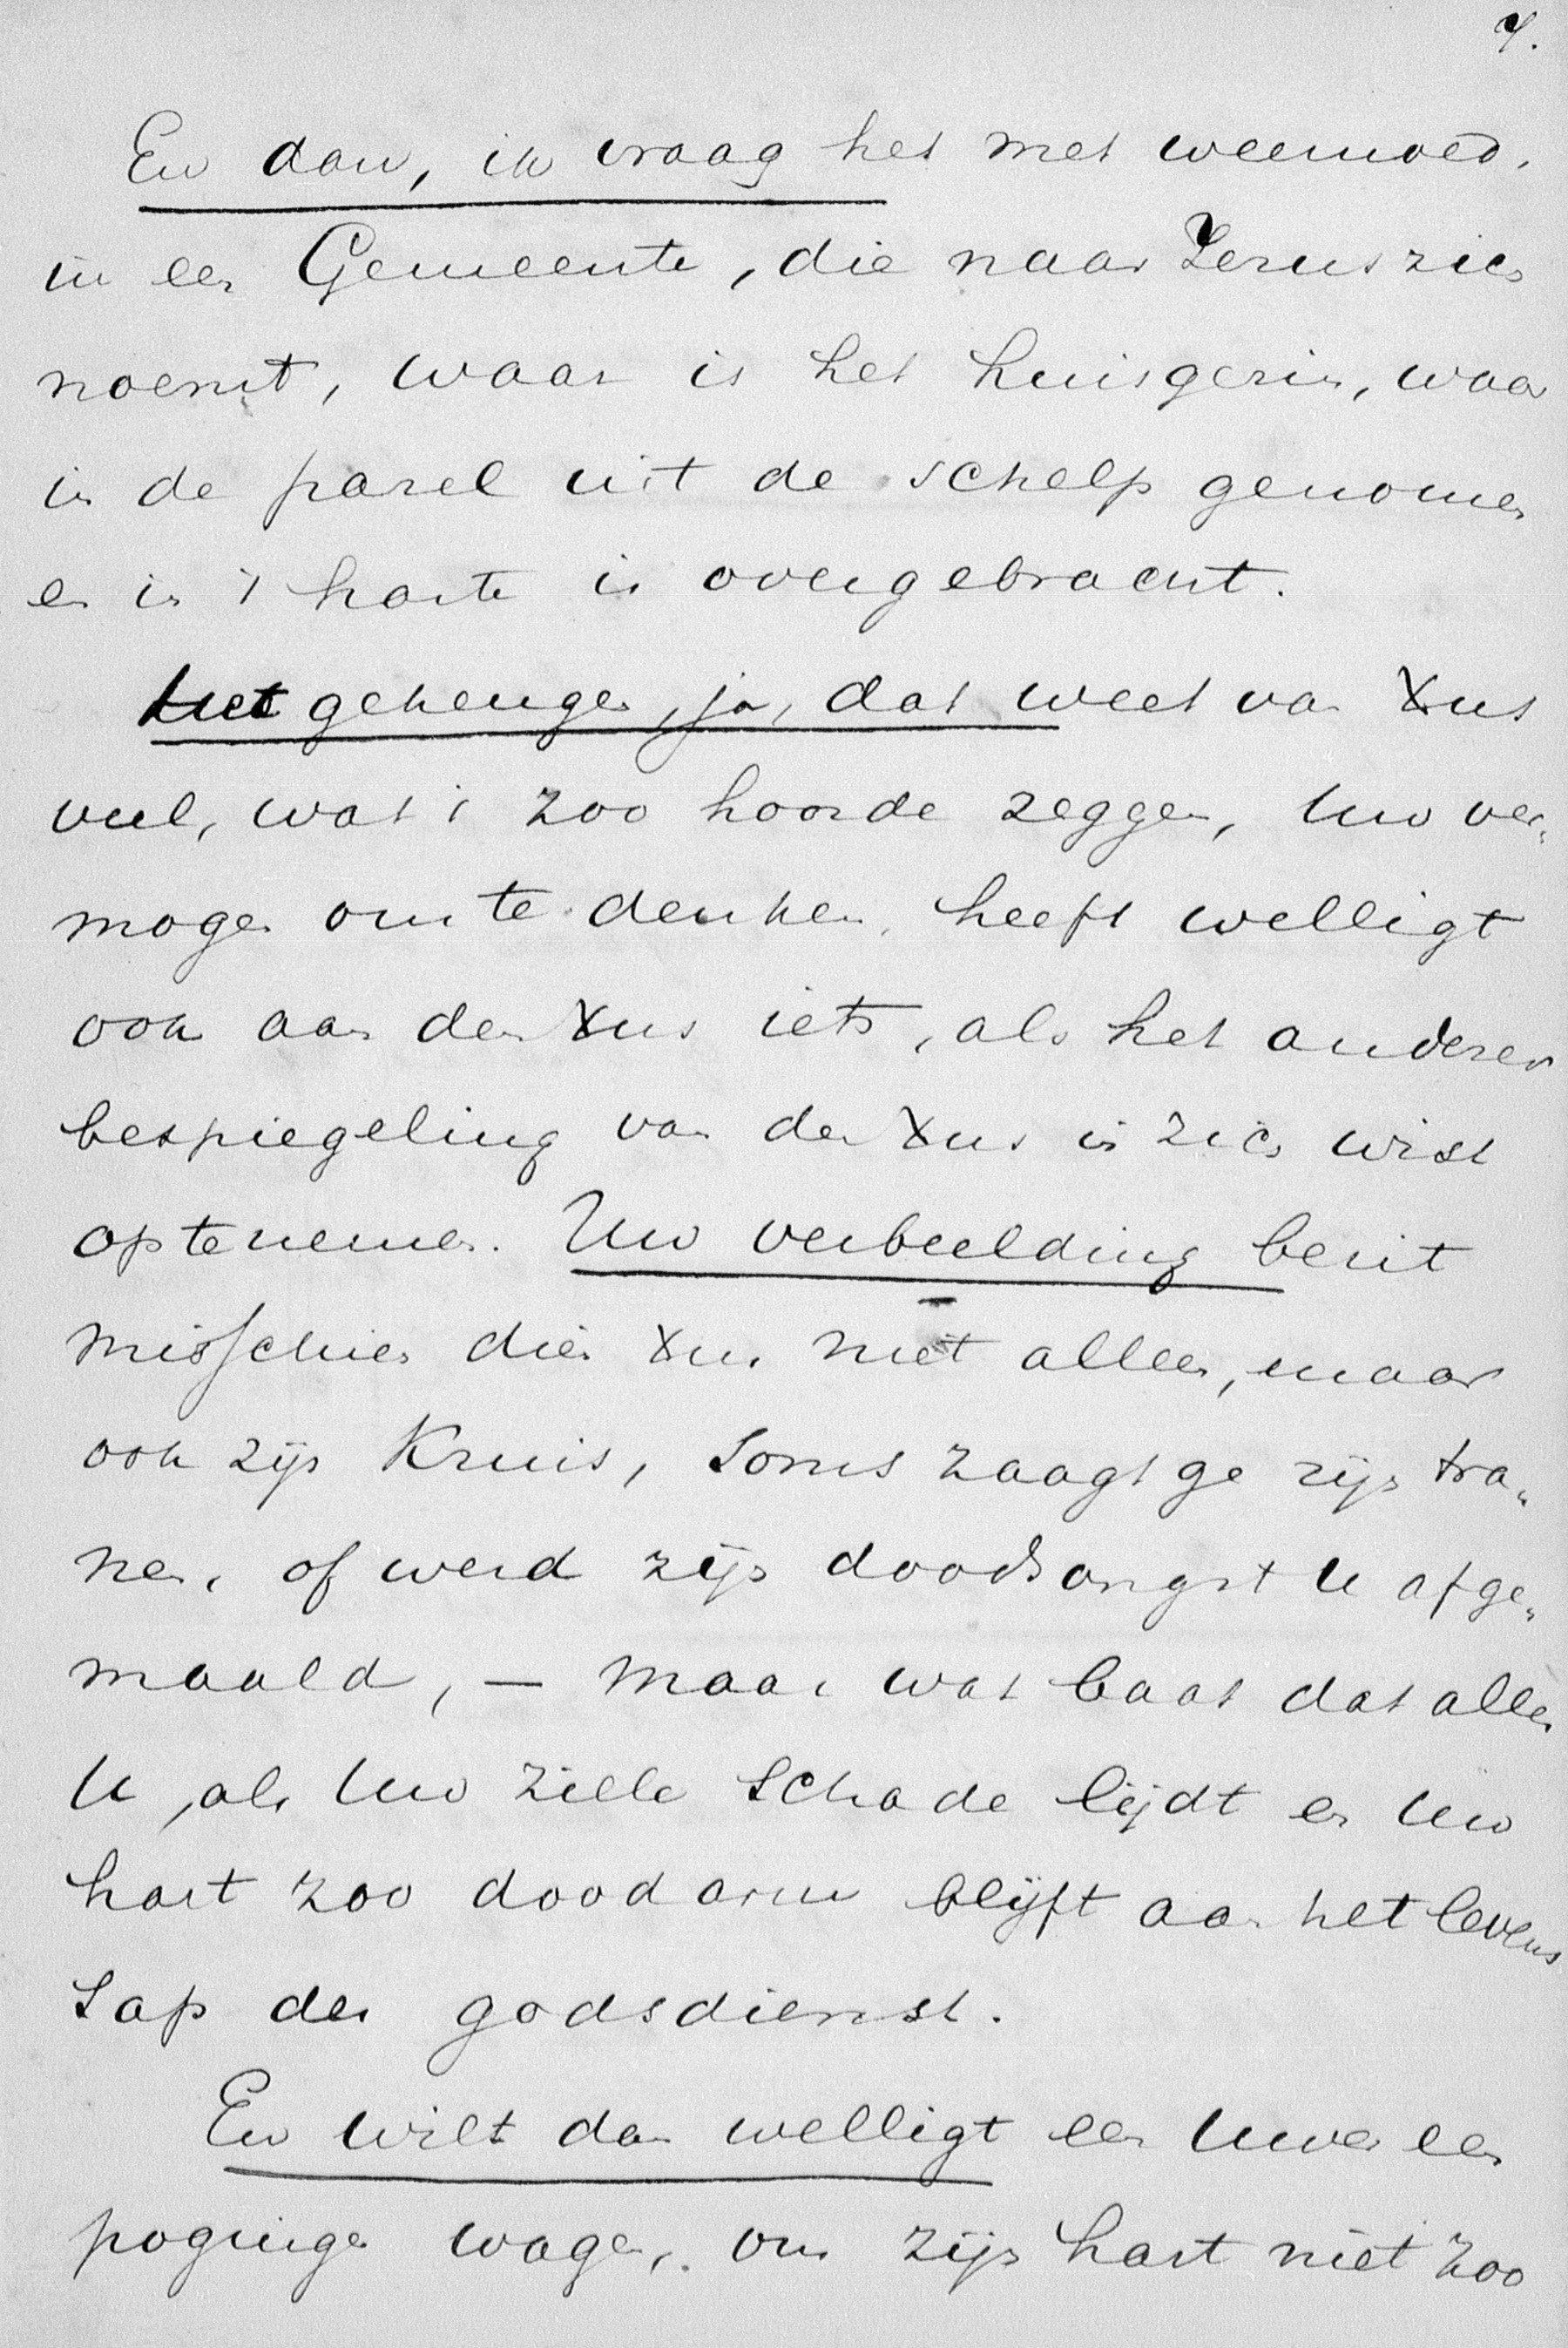 7.
En dan, ik vraag het met weemoed,
in een Gemeente, die naar Jezus zich
noemt, waar is het huisgezin, waar
in de parel uit de schelp genomen
en in 't harte is overgebracht.
Het geheugen, ja, dat weet van Xus
veel, wat 't zoo hoorde zeggen, Uw ver„
mogen om te denken, heeft welligt
ook aan den Xus iets, als het anderer
bespiegeling van den Xus in zich wist
optenemen. Uw verbeelding bezit
misschien dien Xus niet alleen, maar
ook zijn Kruis, Soms zaagt ge zijn tra„
nen, of werd zijn doodsangst U afge„
maald, — maar wat baat dat alles
U, als Uw ziele Schade lijdt en Uw
hart zoo dood arm blijft aan het levens
Sap der godsdienst.
En wilt dan welligt een Uwer een
poginge wagen, om zijn hart niet zoo